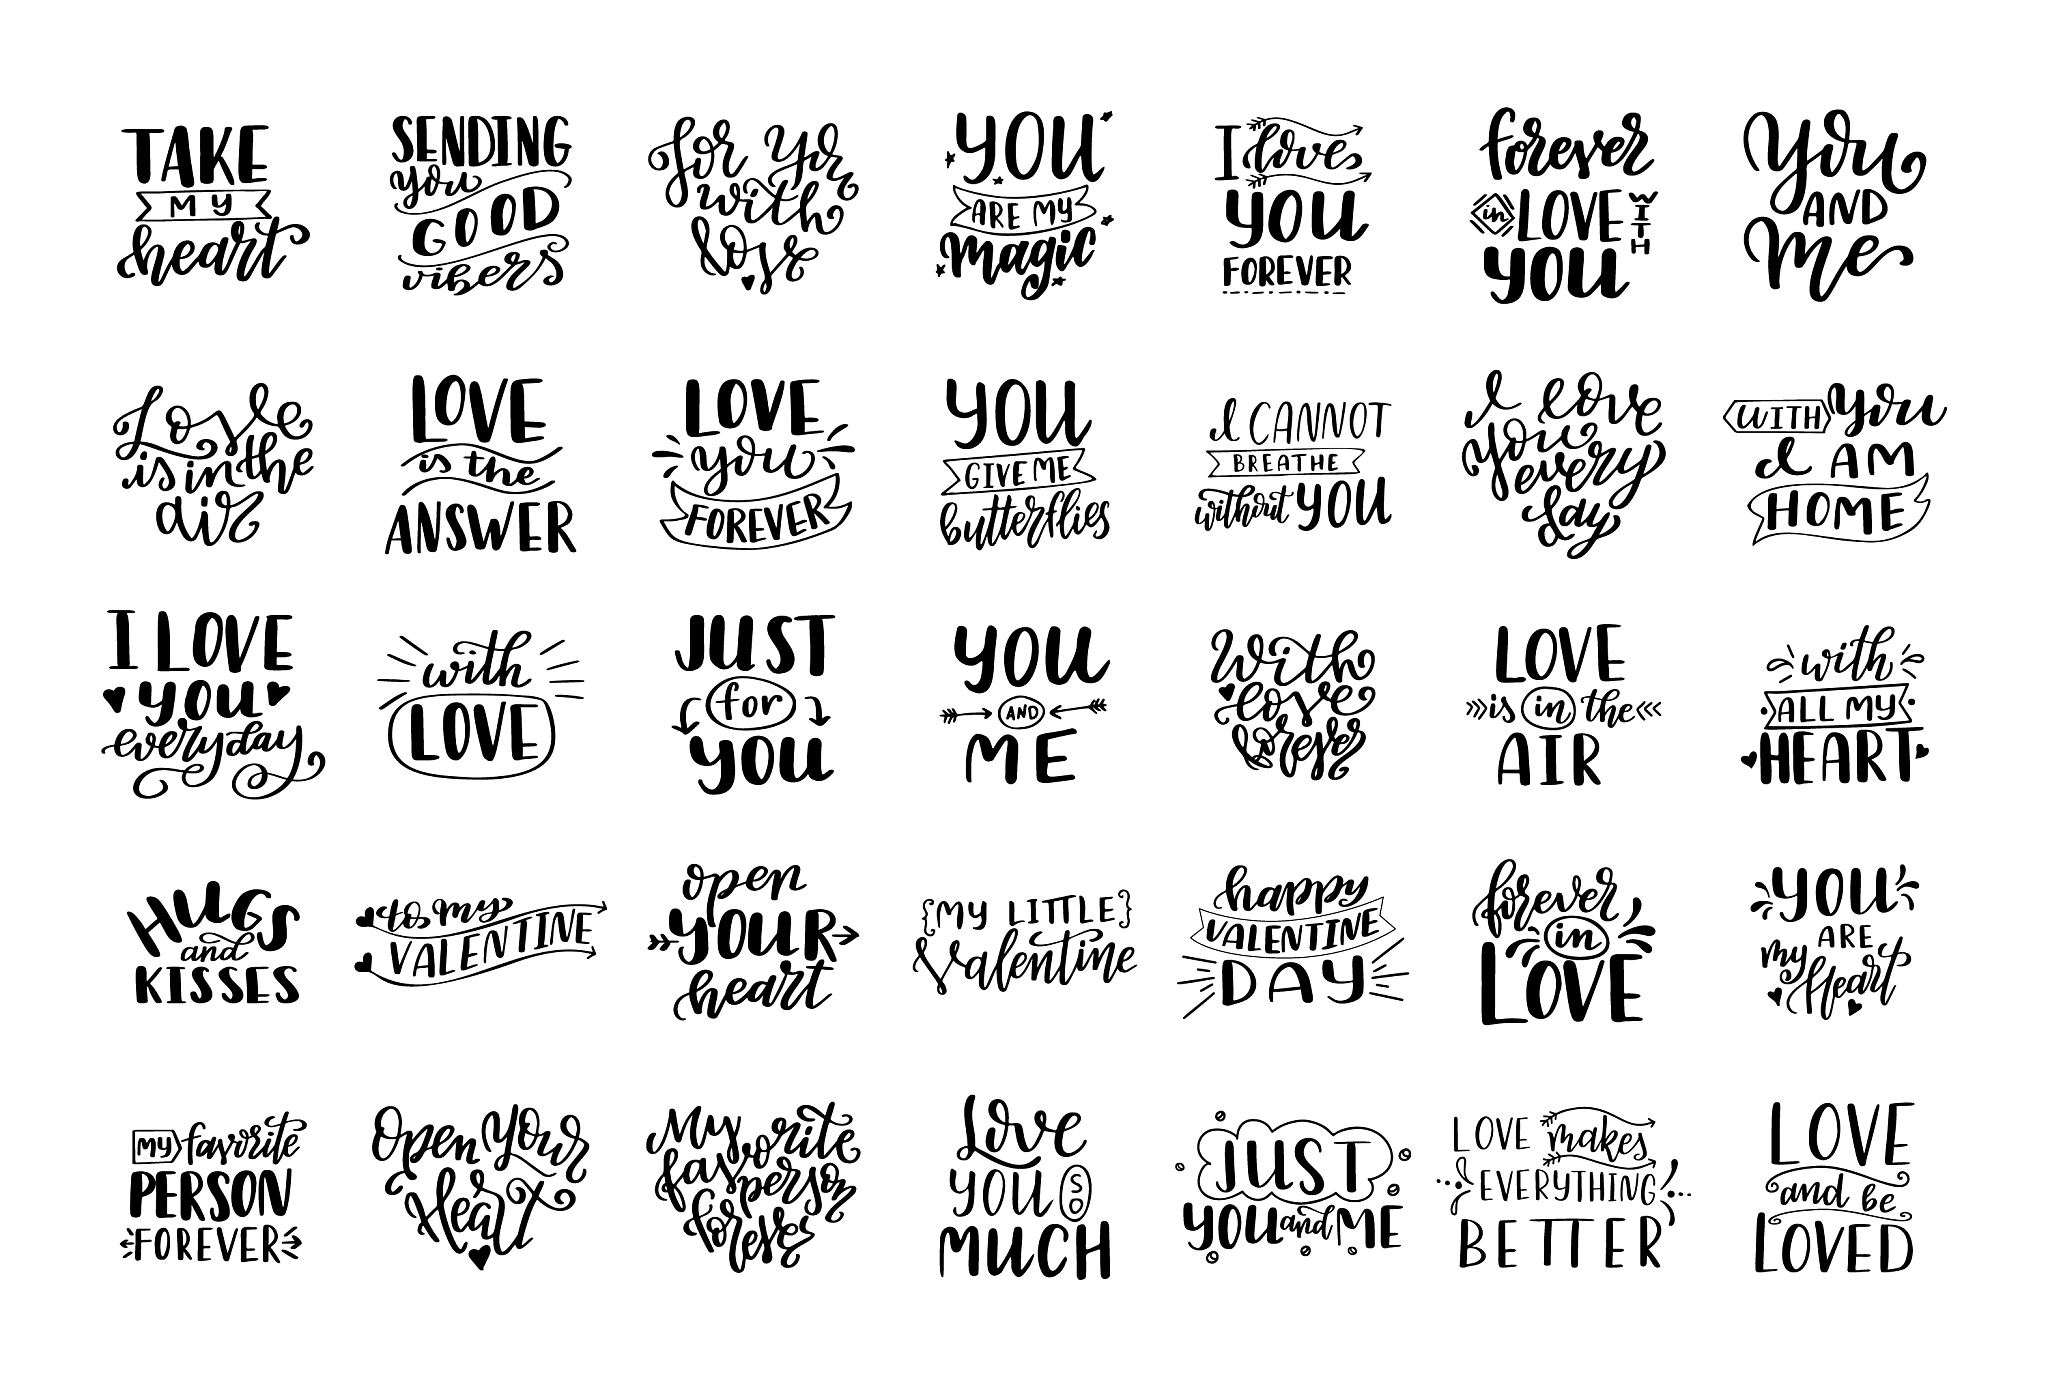 TAKE
MY
heart
SENDING
you
GOOD
vibers
For You
with
love
YOU
ARE MY
magic
I loves
YOU
FOREVER
forever
in LOVE WITH
YOU
You
AND
Me
Love
is in the
air
LOVE
is the
ANSWER
LOVE
you
FOREVER
YOU
GIVE ME
butterflies
I CANNOT
BREATHE
without YOU
I love
you
every
day
WITH You
I AM
HOME
I LOVE
YOU
everyday
with
LOVE
JUST
for
YOU
YOU
AND
ME
With
love
forever
LOVE
is in the
AIR
with
ALL MY
HEART
HUGS
and
KISSES
to my
VALENTINE
open
YOUR
heart
{MY LITTLE}
Valentine
happy
VALENTINE
DAY
forever
in
LOVE
YOU
ARE
my
Heart
MY favorite
PERSON
FOREVER
Open Your
Heart
My
favorite
person
forever
Love
YOU SO
MUCH
JUST
YOU and ME
LOVE makes
EVERYTHING
BETTER
LOVE
and be
LOVED